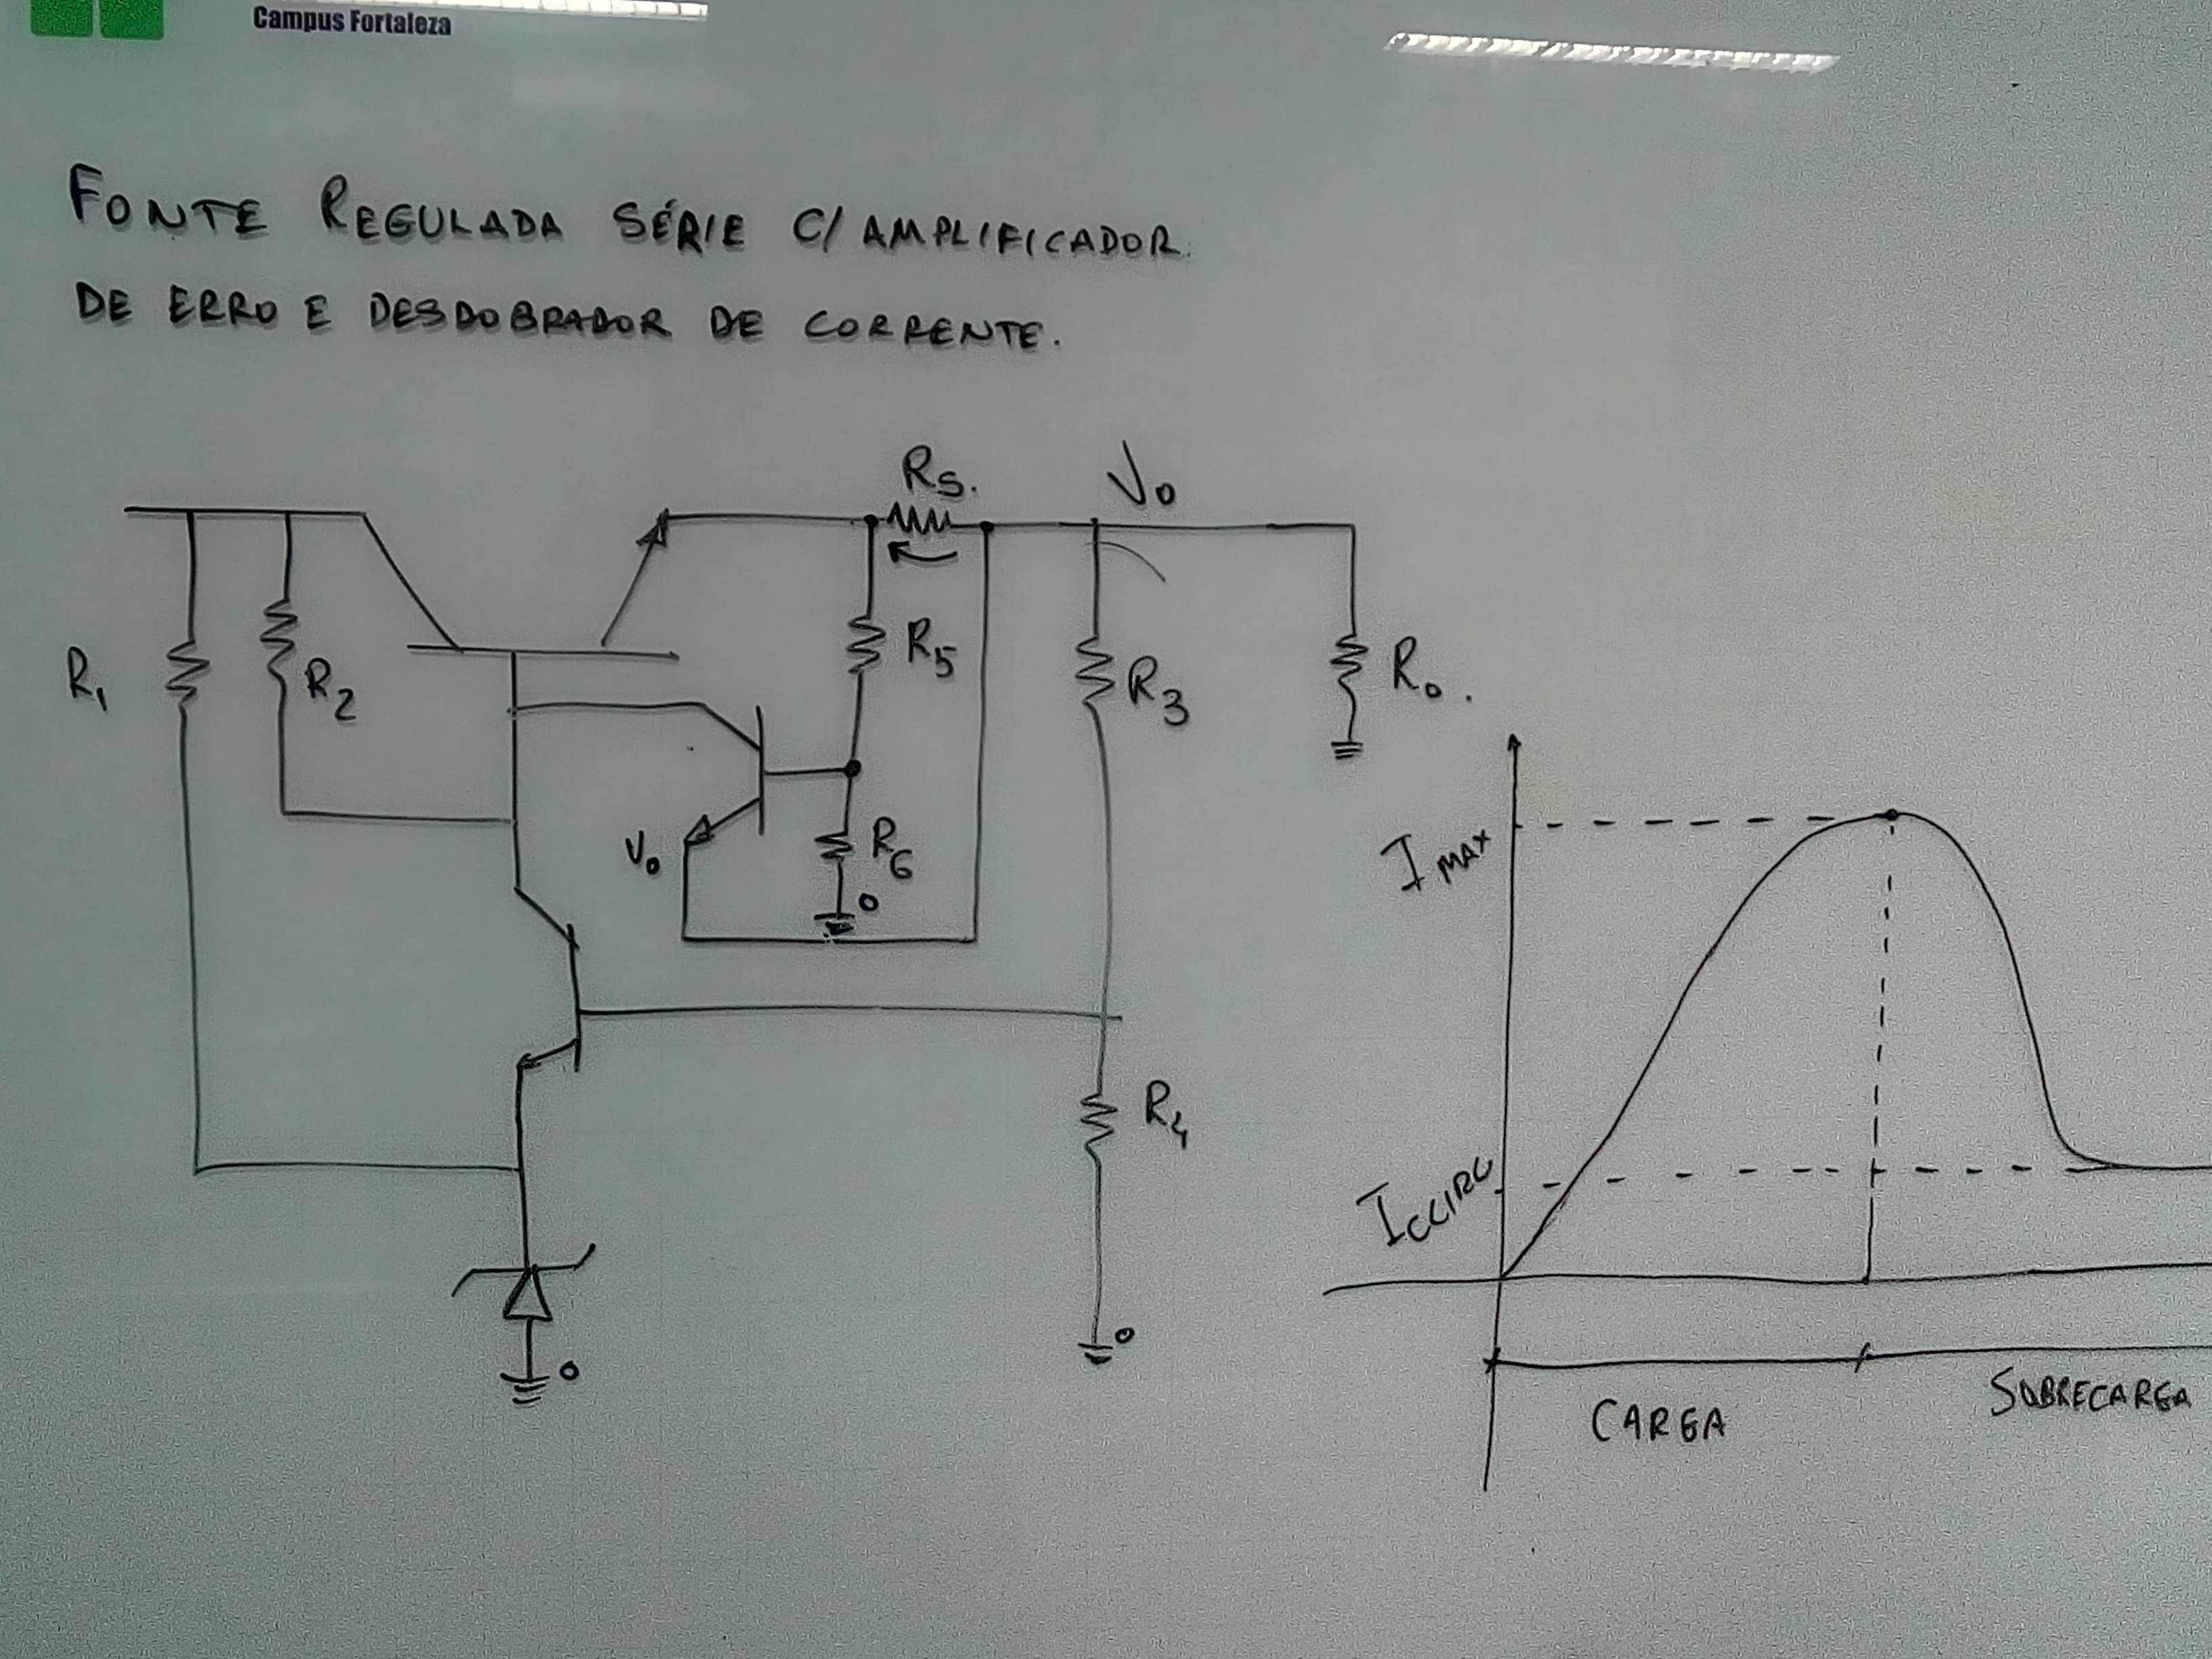 Campus Fortaleza
FONTE REGULADA SÉRIE C/ AMPLIFICADOR.
DE ERRO E DESDOBRADOR DE CORRENTE.
RS.
Vo
R1
R2
R5
R3
Ro.
Vo
R6
0
IMAX
R4
ICCIRC
0
0
CARGA
SOBRECARGA